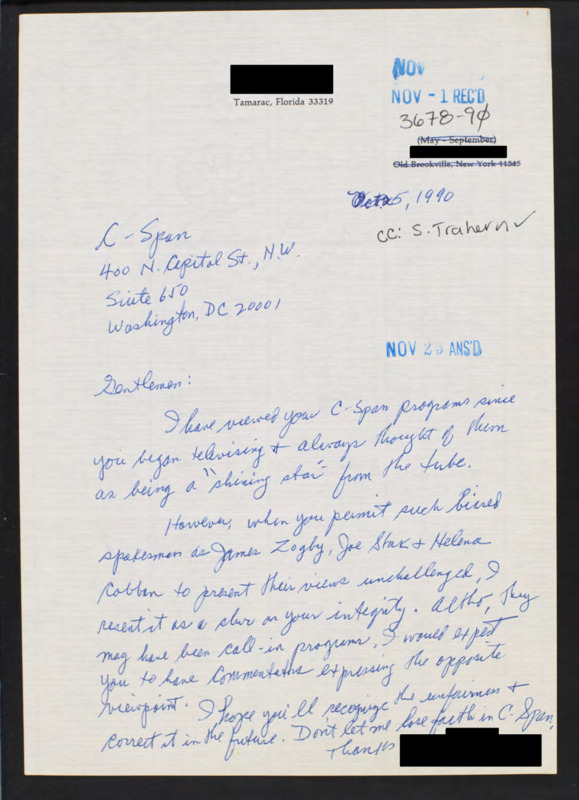 Tamarac, Florida 33319
NOV
NOV - 1 REC'D
3678-90
(May - September)
Old Brookville, New York 11545
5, 1990
cc: S. Trahern ✓
C-Span
400 N. Capitol St., N.W.
Suite 650
Washington, DC 20001
NOV 23 ANS'D
Gentlemen:
I have viewed your C-Span programs since
you began televising & always thought of them
as being a "shining star" from the tube.
However, when you permit such biased
spokesman as James Zogby, Joe & Helena
Cobban to present their views unchallenged, I
resent it as a slur on your integrity. Altho, they
may have been call-in programs, I would expect
you to have commentators expressing the opposite
viewpoint.
I hope you'll recognize the unfairness &
correct it in the future. Don't let me lose faith in C-Span,
Thanks